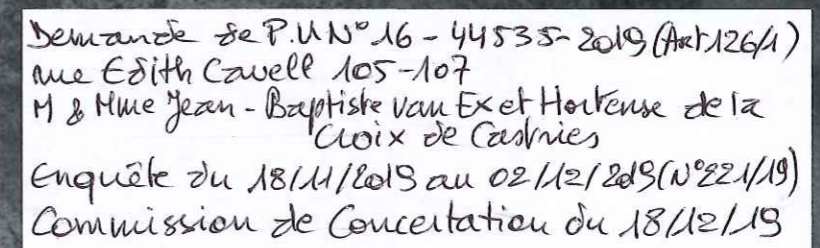 Demande de P.U N° 16-44535-2019 (Art 126/1)
rue Edith Cavell 105-107
M & Mme Jean-Baptiste van Ex et Hortense de la
Croix de Castries
Enquête du 18/11/2019 au 02/12/2019 (N°221/19)
Commission de Concertation du 18/12/19